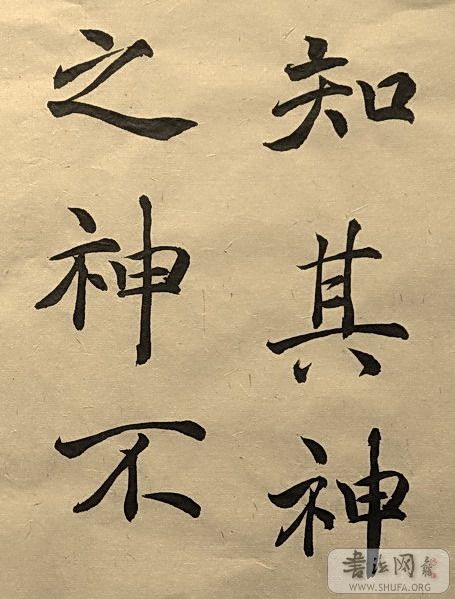 知其神
之神不
書法网
WWW.SHUFA.ORG